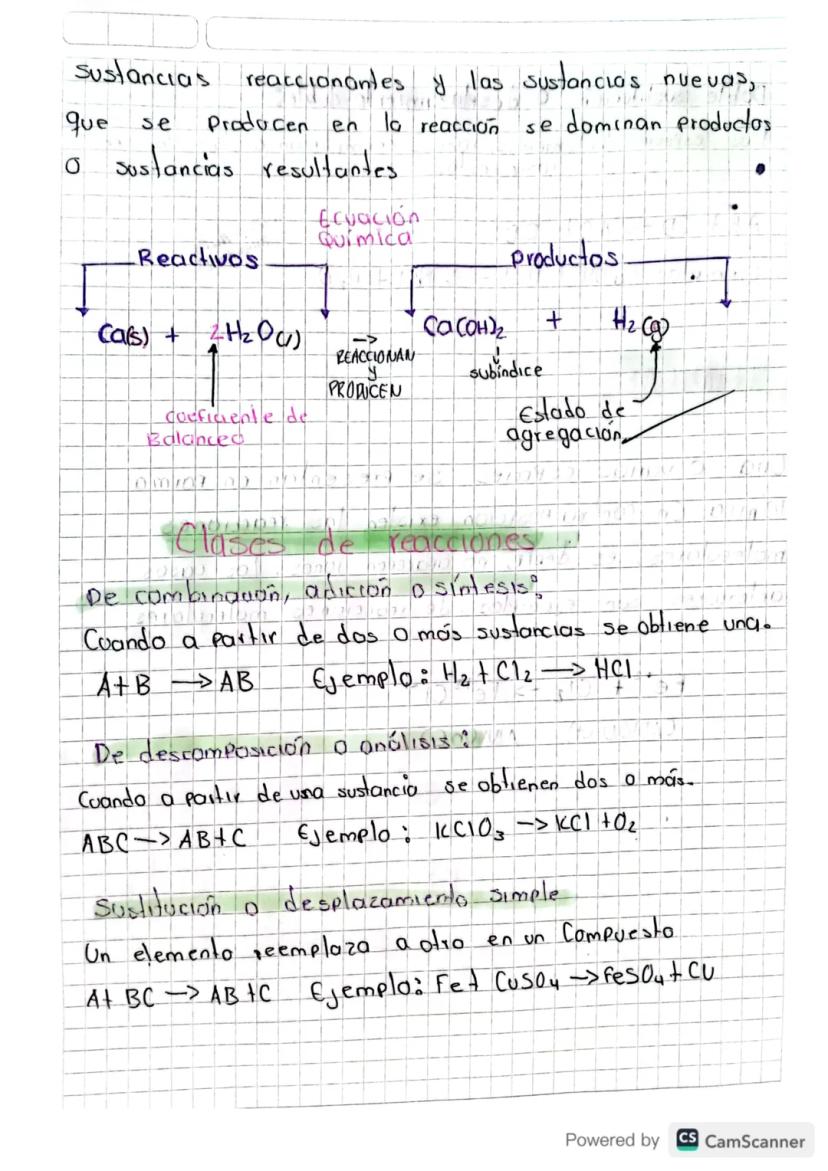 sustancias reaccionantes y las sustancias nuevas,
que se producen en la reacción se dominan productos
o sustancias resultantes
Ecuación
Química
Reactivos
productos
Ca(s) + 2H₂O(l) → Ca(OH)₂ + H₂(g)
REACCIONAN
y
PRODUCEN
subíndice
coeficiente de
Balanceo
Estado de
agregación
Clases de reacciones
De combinación, adición o síntesis:
Cuando a partir de dos o más sustancias se obtiene una.
A+B → AB Ejemplo: H₂ + Cl₂ → HCl.
De descomposición o análisis:
Cuando a partir de una sustancia se obtienen dos o más.
ABC → AB+C Ejemplo: KClO₃ → KCl + O₂
Sustitución o desplazamiento simple
Un elemento reemplaza a otro en un Compuesto
A+ BC → AB +C Ejemplo: Fe+ CuSO₄ → FeSO₄ + CU
Powered by CS CamScanner